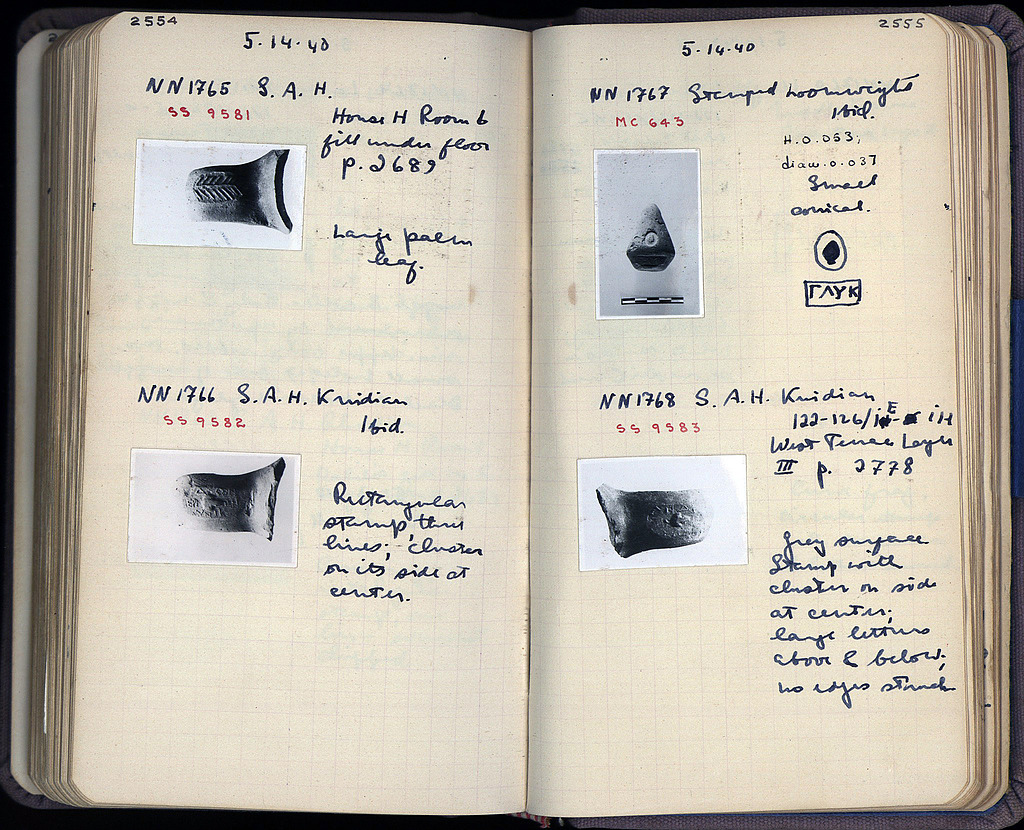 2554
5·14·40
NN1765 S.A.H.
SS 9581
House H Room 6
fill under floor
p. 2689
Large palm
leaf.
NN1766 S.A.H. Knidian
SS 9582
Ibid.
Rectangular
stamp, three
lines; cluster
on its side at
center.
2555
5·14·40
NN1767 Stamped Loomweight
MC 643
Ibid.
H.0.053;
diam.0.037
Small
conical.
ΓΛΥΚ
NN1768 S.A.H. Knidian
SS 9583
122-126/ ΙΗ
West Terrace Layer
III p. 2778
Grey surface
Stamp with
cluster on side
at center;
large letters
above & below;
no edges struck